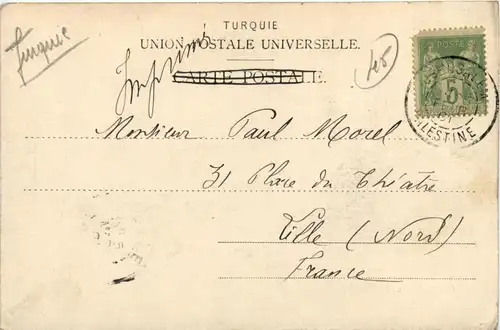 TURQUIE
Turquie
UNION POSTALE UNIVERSELLE.
Imprimé
CARTE POSTALE.
45
POSTE
5
JERUSALEM
PALESTINE
Monsieur Paul Morel
31 Place du Théâtre
Lille (Nord)
France